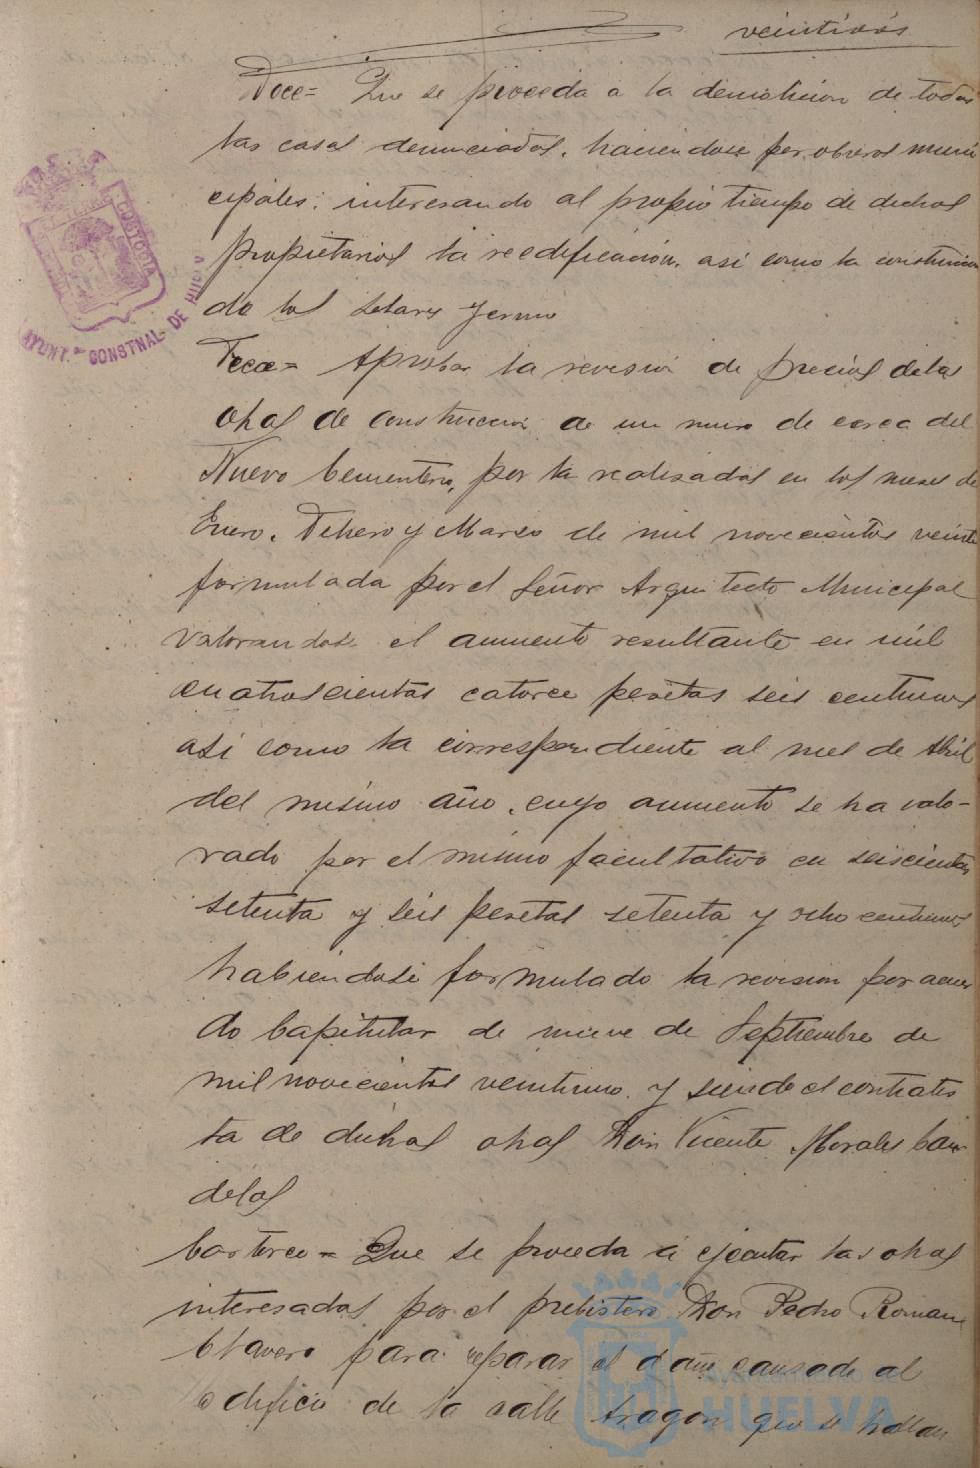 veintidós
Doce= Que se proceda a la demolicion de todas
las casas denunciadas, haciendose por obreros muni
cipales; interesando al propio tiempo de dichos
propietarios la reedificación, así como la construccion
de los solares yermo
Trece= Aprobar la revision de precios de las
obras de construccion de un muro de cerca del
Nuevo Cementerio, por la realisadas en los meses de
Enero, Febrero y Marzo de mil novecientos veinte
formulada por el Señor Arquitecto Municipal
valorandose el aumento resultante en mil
cuatroscientas catorce pesetas seis centimos
así como la correspondiente al mes de Abril
del mismo año, cuyo aumento se ha valo-
rado por el mismo facultativo en seiscientas
setenta y seis pesetas setenta y ocho centimos
habiendose formulado la revision por acuer
do Capitular de nueve de Septiembre de
mil novecientos veintiuno y siendo el contratis
ta de dichas obras Don Vicente Morales Can-
delas
Catorce= Que se proceda a ejecutar las obras
interesadas por el presbistero Don Pedro Roman
Clavero para reparar el daño causado al
edificio de la calle Aragon que se hallan
AYUNT.º CONSTNAL. DE HUELVA
CUSTODIA
Ayuntamiento de
HUELVA